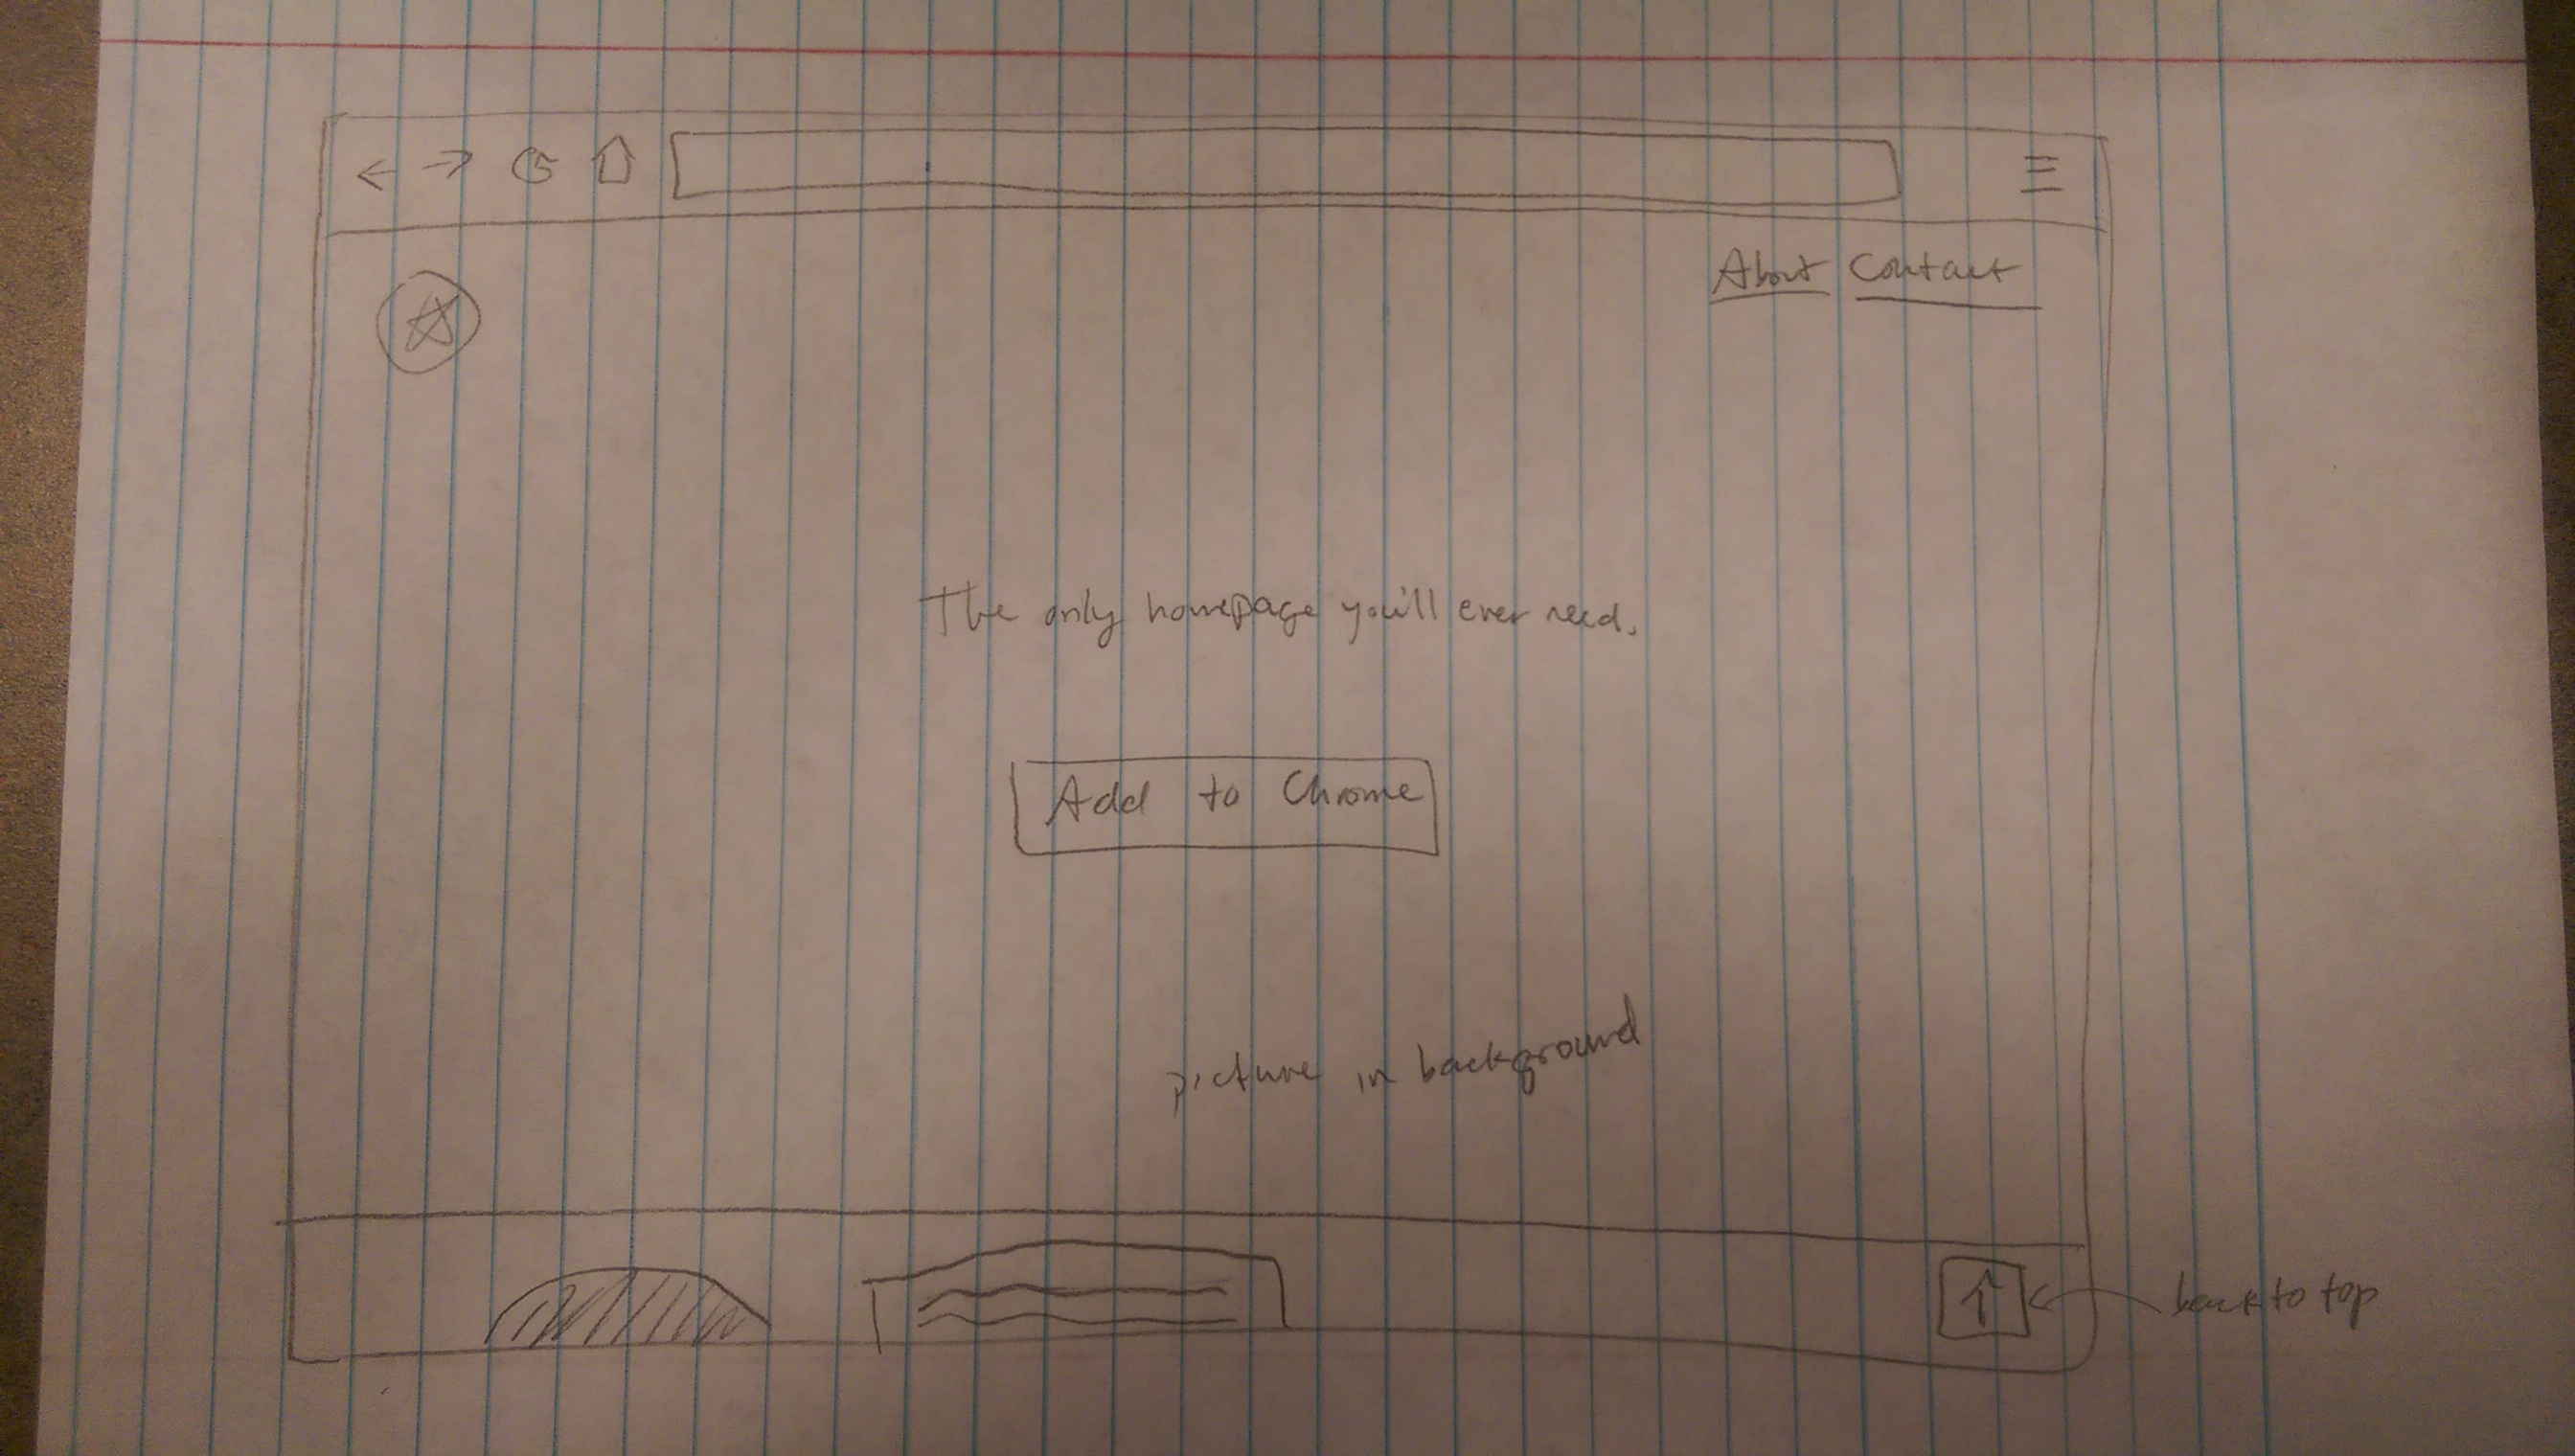 About Contact
The only homepage you'll ever need.
Add to Chrome
picture in background
back to top